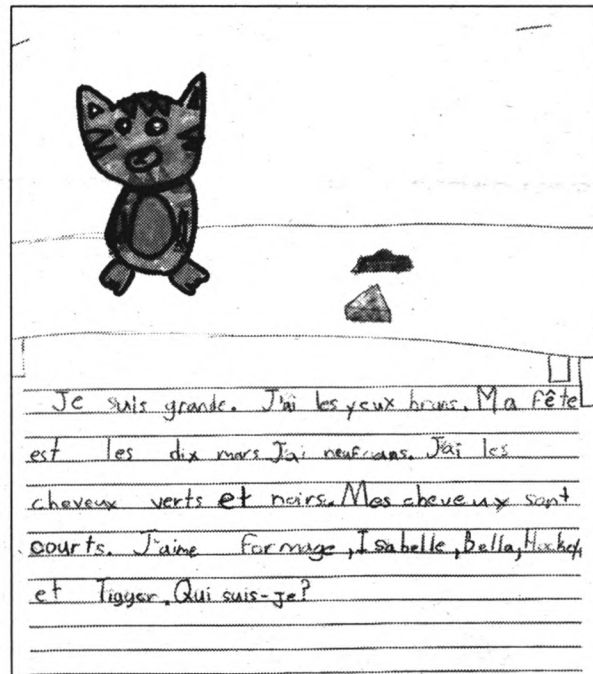 Je suis grande. J'ai les yeux bruns. Ma fête
est les dix mars J'ai neuf ans. J'ai les
cheveux verts et noirs. Mes cheveux sont
courts. J'aime formage, Isabelle, Bella, Hockey,
et Tigger. Qui suis-je?